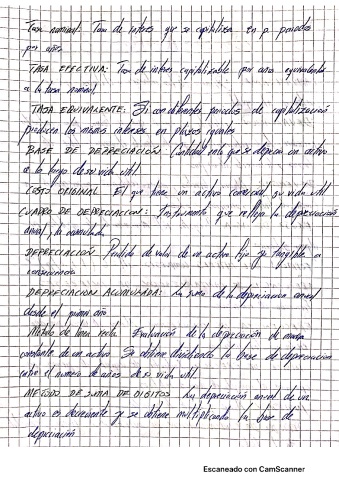 Tasa nominal: Tasa de interes que se capitaliza en p periodos
por años
TASA EFECTIVA: Tasa de interes capitalizable por año equivalente
a la tasa nominal
TASA EQUIVALENTE: Si con diferentes periodos de capitalización
producen los mismos intereses en plazos iguales
BASE DE DEPRECIACIÓN: Cantidad en la que se deprecia un activo
a lo largo de su vida util
COSTO ORIGINAL El que tiene un activo su vida util
CUADRO DE DEPRECIACION: Instrumento que refleja la depreciación
anual, la acumulada
DEPRECIACIÓN Perdida de valor de un activo fijo y tangible a
consecuencia
DEPRECIACION ACUMULADA: La suma de la depreciación anual
desde el primer año
Metodo de linea recta. Evaluación de la depreciación de manera
constante de un activo Se obtiene dividiendo la base de depreciacion
entre el numero de años de su vida util
METODO DE SUMA DE DIGITOS La depreciación anual de un
activo es decreciente y se obtiene multiplicando la base de
depreciación
Escaneado con CamScanner